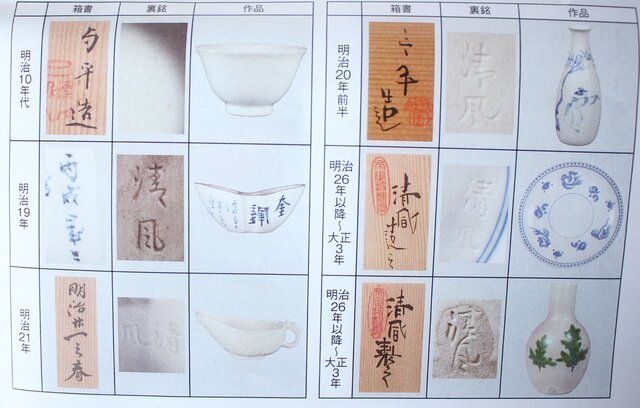 箱書 裏銘 作品
明治10年代
造
明治19年
清風
奎
明治21年
明治廿一之春
清風
箱書 裏銘 作品
明治20年前半
造
清風
明治26年以降〜大正3年
清風造之
清風
明治26年以降〜大正3年
清風製之
清風